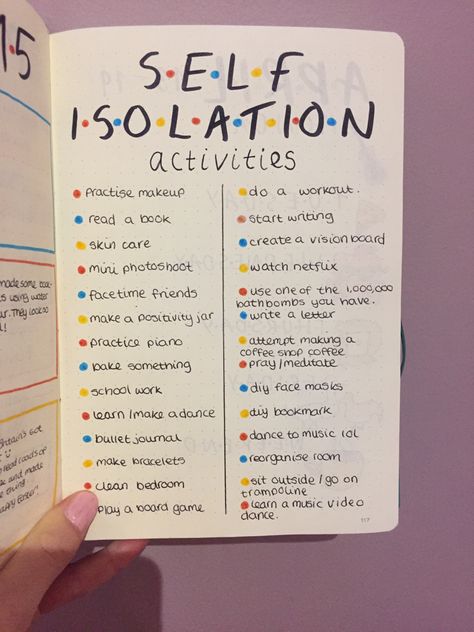 1.5
made some
s using water
ur. They look so
!
Britain's got
read loads of
and made
thing
Happy Easter!
SELF
ISOLATION
activities
Practise makeup
read a book
skin care
mini photoshoot
facetime friends
make a positivity jar
practice piano
bake something
school work
learn/make a dance
bullet journal
make bracelets
clean bedroom
play a board game
do a workout.
start writing
create a vision board
watch netflix
use one of the 1,000,000
bathbombs you have.
write a letter
attempt making a
coffee shop coffee
pray/meditate
diy face masks
diy bookmark
dance to music lol
reorganise room
sit outside/go on
trampoline
learn a music video
dance.
117